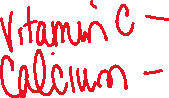 Vitamin C -
Calcium -